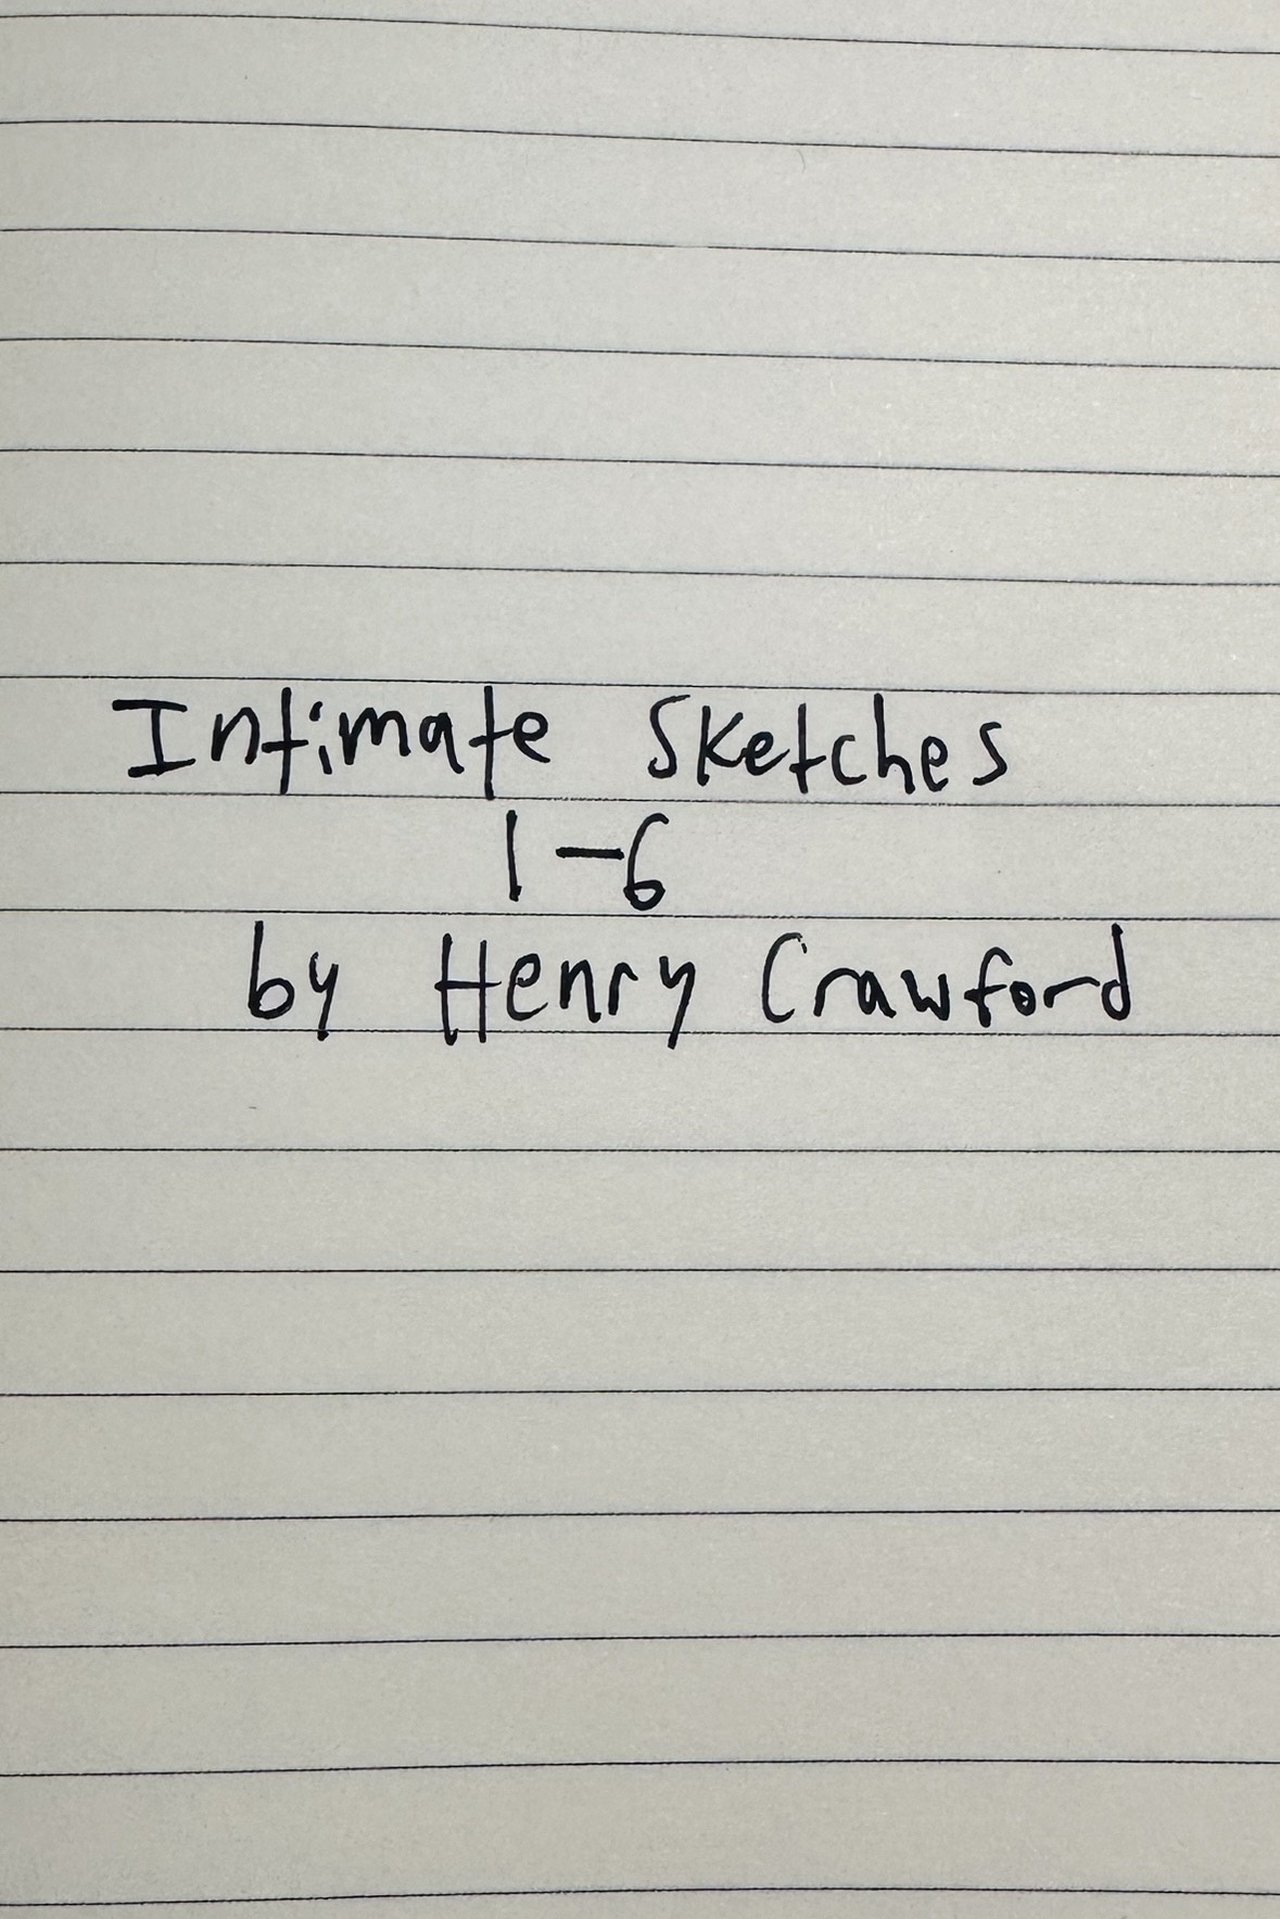 Intimate Sketches
1-6
by Henry Crawford